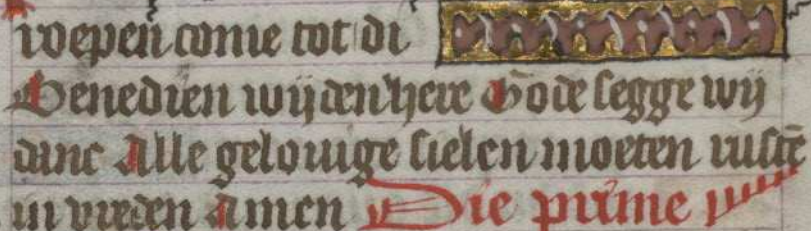 roepen come tot di
Benedien wij den here Gode segge wij
danc Alle gelouige sielen moeten rustē
in vreden Amen Die prime